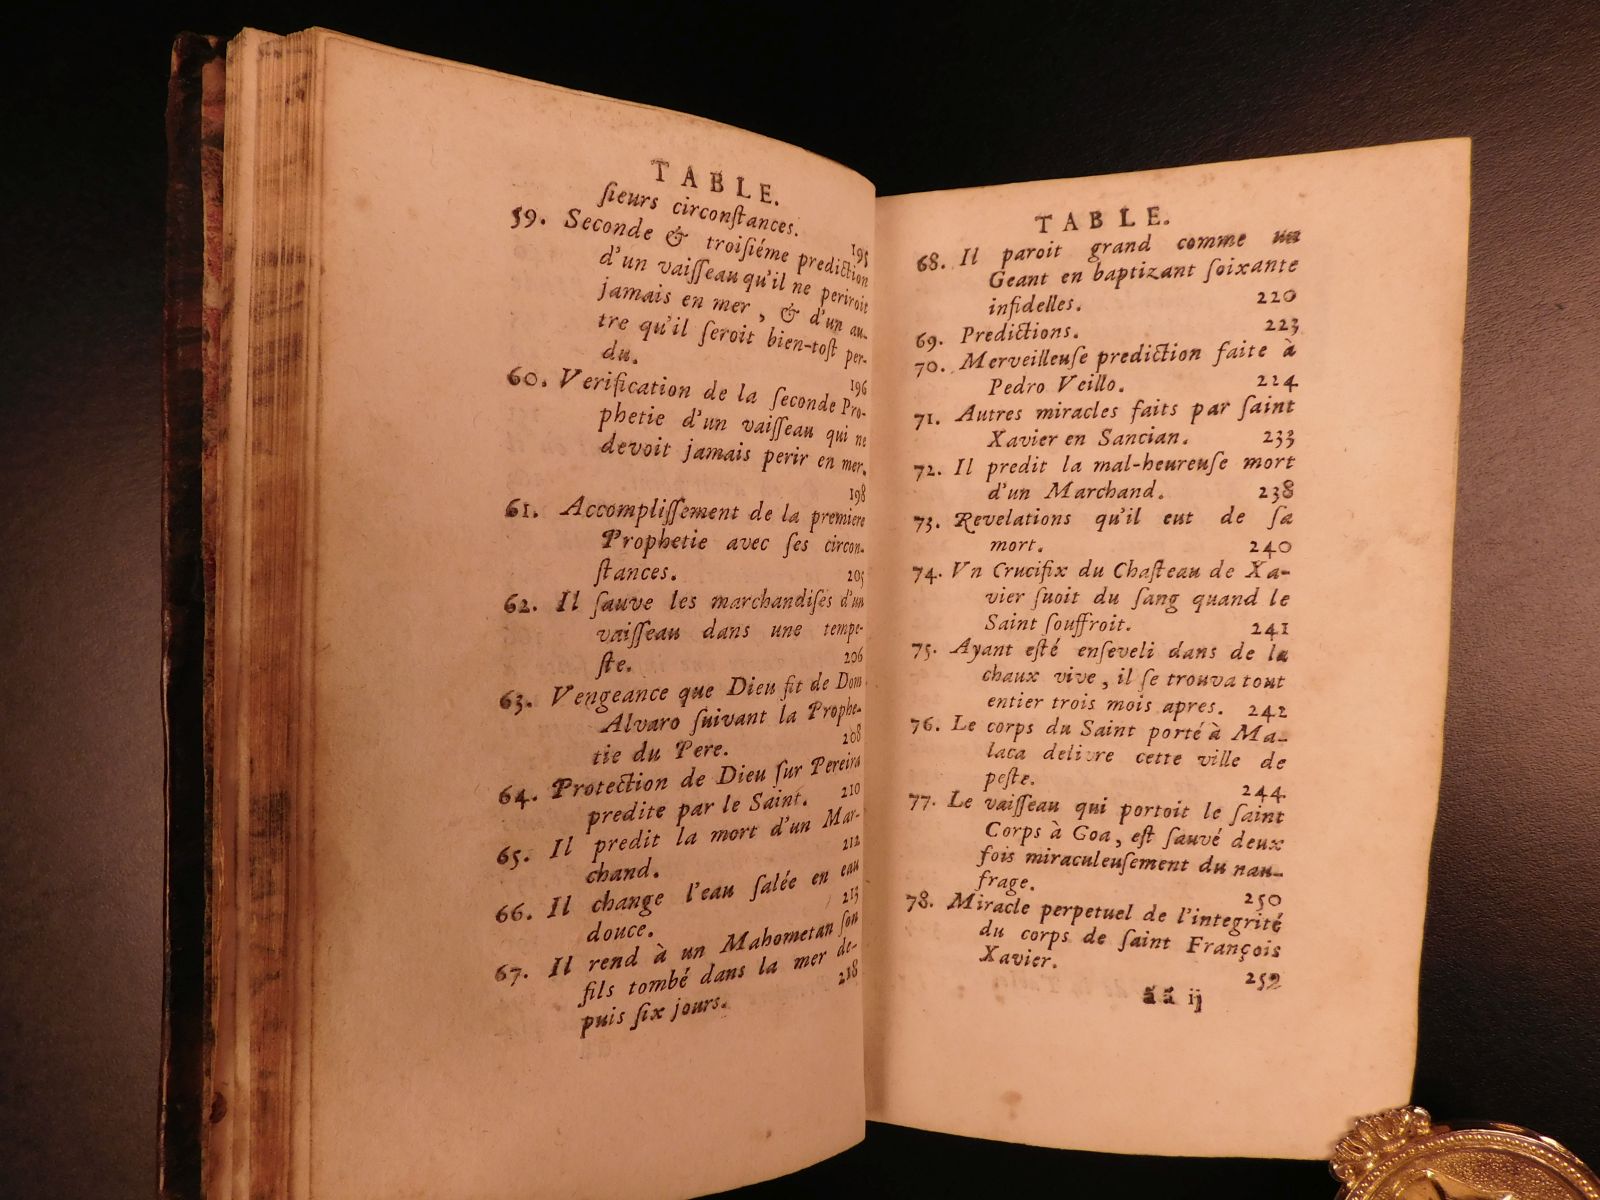 TABLE.
ſieurs circonſtances. 195
59. Seconde & troiſiéme prediction
d'un vaiſſeau qu'il ne periroit
jamais en mer, & d'un au-
tre qu'il ſeroit bien-toſt per-
du. 196
60. Verification de la ſeconde Pro-
phetie d'un vaiſſeau qui ne
devoit jamais perir en mer.
198
61. Accompliſſement de la premiere
Prophetie avec ſes circon-
ſtances. 205
62. Il ſauve les marchandiſes d'un
vaiſſeau dans une tempe-
ſte. 206
63. Vengeance que Dieu fit de Dom
Alvaro ſuivant la Prophe-
tie du Pere. 208
64. Protection de Dieu ſur Pereira
predite par le Saint. 210
65. Il predit la mort d'un Mar-
chand. 212
66. Il change l'eau ſalée en eau
douce. 213
67. Il rend à un Mahometan ſon
fils tombé dans la mer de-
puis ſix jours. 218
TABLE.
68. Il paroit grand comme un
Geant en baptizant ſoixante
infidelles. 220
69. Predictions. 223
70. Merveilleuſe prediction faite à
Pedro Veillo. 224
71. Autres miracles faits par ſaint
Xavier en Sancian. 233
72. Il predit la mal-heureuſe mort
d'un Marchand. 238
73. Revelations qu'il eut de ſa
mort. 240
74. Vn Crucifix du Chaſteau de Xa-
vier ſuoit du ſang quand le
Saint ſouffroit. 241
75. Ayant eſté enſeveli dans de la
chaux vive, il ſe trouva tout
entier trois mois apres. 242
76. Le corps du Saint porté à Ma-
laca delivre cette ville de
peſte. 244
77. Le vaiſſeau qui portoit le ſaint
Corps à Goa, eſt ſauvé deux
fois miraculeuſement du nau-
frage. 250
78. Miracle perpetuel de l'integrité
du corps de ſaint François
Xavier. 252
ã ã ij